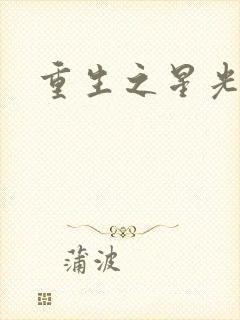 重生之星光
蒲波